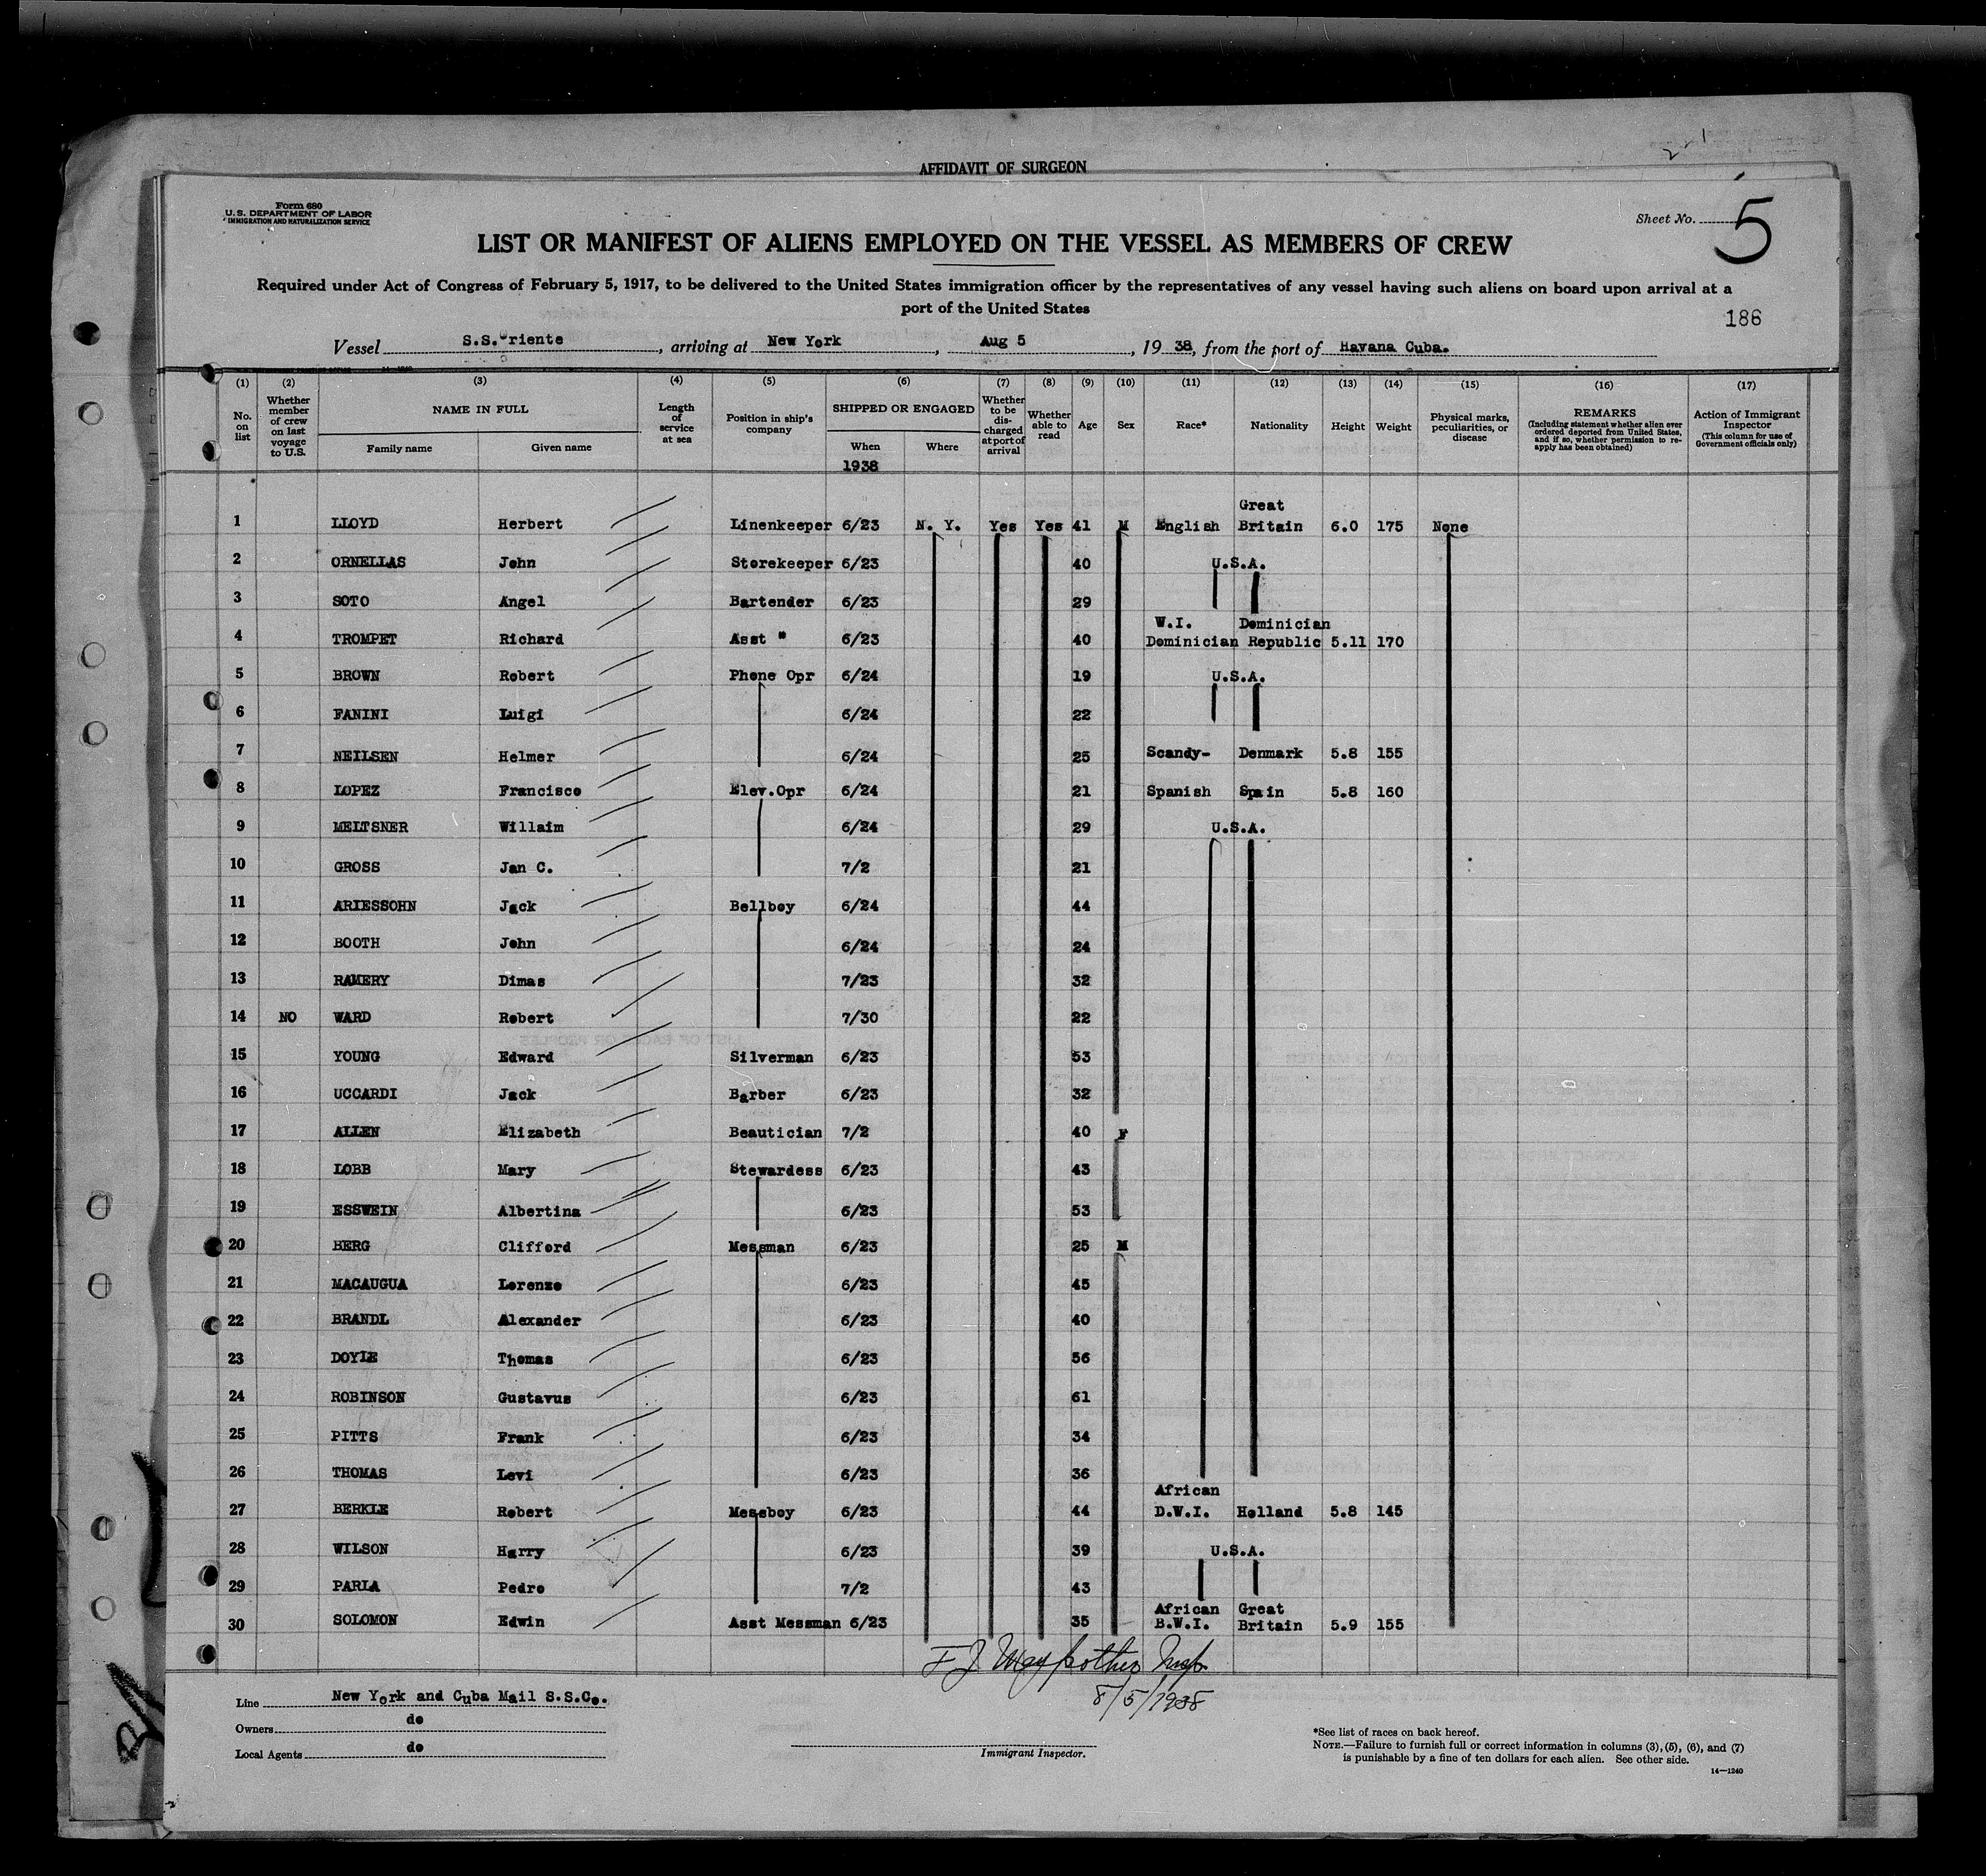 AFFIDAVIT OF SURGEON
Form 680
U. S. DEPARTMENT OF LABOR
IMMIGRATION AND NATURALIZATION SERVICE
Sheet No. 5
LIST OR MANIFEST OF ALIENS EMPLOYED ON THE VESSEL AS MEMBERS OF CREW
Required under Act of Congress of February 5, 1917, to be delivered to the United States immigration officer by the representatives of any vessel having such aliens on board upon arrival at a
port of the United States
186
Vessel S.S. Oriente, arriving at New York, Aug 5, 19 38, from the port of Havana Cuba.
(1) (2) (3) (4) (5) (6) (7) (8) (9) (10) (11) (12) (13) (14) (15) (16) (17)
No. on list
Whether member of crew on last voyage to U.S.
NAME IN FULL
Family name Given name
Length of service at sea
Position in ship's company
SHIPPED OR ENGAGED
When Where
1938
Whether to be discharged at port of arrival
Whether able to read
Age
Sex
Race*
Nationality
Height
Weight
Physical marks, peculiarities, or disease
REMARKS
(Including statement whether alien ever ordered deported from United States, and if so, whether permission to reapply has been obtained)
Action of Immigrant Inspector
(This column for use of Government officials only)
Great
1 LLOYD Herbert Linenkeeper 6/23 N. Y. Yes Yes 41 M English Britain 6.0 175 None
2 ORNELLAS John Storekeeper 6/23 40 U.S.A.
3 SOTO Angel Bartender 6/23 29
W.I. Dominician
4 TROMPET Richard Asst " 6/23 40 Dominician Republic 5.11 170
5 BROWN Robert Phone Opr 6/24 19 U.S.A.
6 FANINI Luigi 6/24 22
7 NEILSEN Helmer 6/24 25 Scandy- Denmark 5.8 155
8 LOPEZ Francisco Elev.Opr 6/24 21 Spanish Spain 5.8 160
9 MELTSNER Willaim 6/24 29 U.S.A.
10 GROSS Jan C. 7/2 21
11 ARIESSOHN Jack Bellboy 6/24 44
12 BOOTH John 6/24 24
13 RAMERY Dimas 7/23 32
14 NO WARD Robert 7/30 22
15 YOUNG Edward Silverman 6/23 53
16 UCCARDI Jack Barber 6/23 32
17 ALLEN Elizabeth Beautician 7/2 40 F
18 LOBB Mary Stewardess 6/23 43
19 ESSWEIN Albertina 6/23 53
20 BERG Clifford Messman 6/23 25 M
21 MACAUGUA Lorenzo 6/23 45
22 BRANDL Alexander 6/23 40
23 DOYLE Thomas 6/23 56
24 ROBINSON Gustavus 6/23 61
25 PITTS Frank 6/23 34
26 THOMAS Levi 6/23 36
African
27 BERKLE Robert Messboy 6/23 44 D.W.I. Holland 5.8 145
28 WILSON Harry 6/23 39 U.S.A.
29 PARLA Pedro 7/2 43
African Great
30 SOLOMON Edwin Asst Messman 6/23 35 B.W.I. Britain 5.9 155
8/5/1938
Line New York and Cuba Mail S.S.Co.
Owners do
Local Agents do
Immigrant Inspector.
*See list of races on back hereof.
NOTE.—Failure to furnish full or correct information in columns (3), (5), (6), and (7)
is punishable by a fine of ten dollars for each alien. See other side.
14—1240